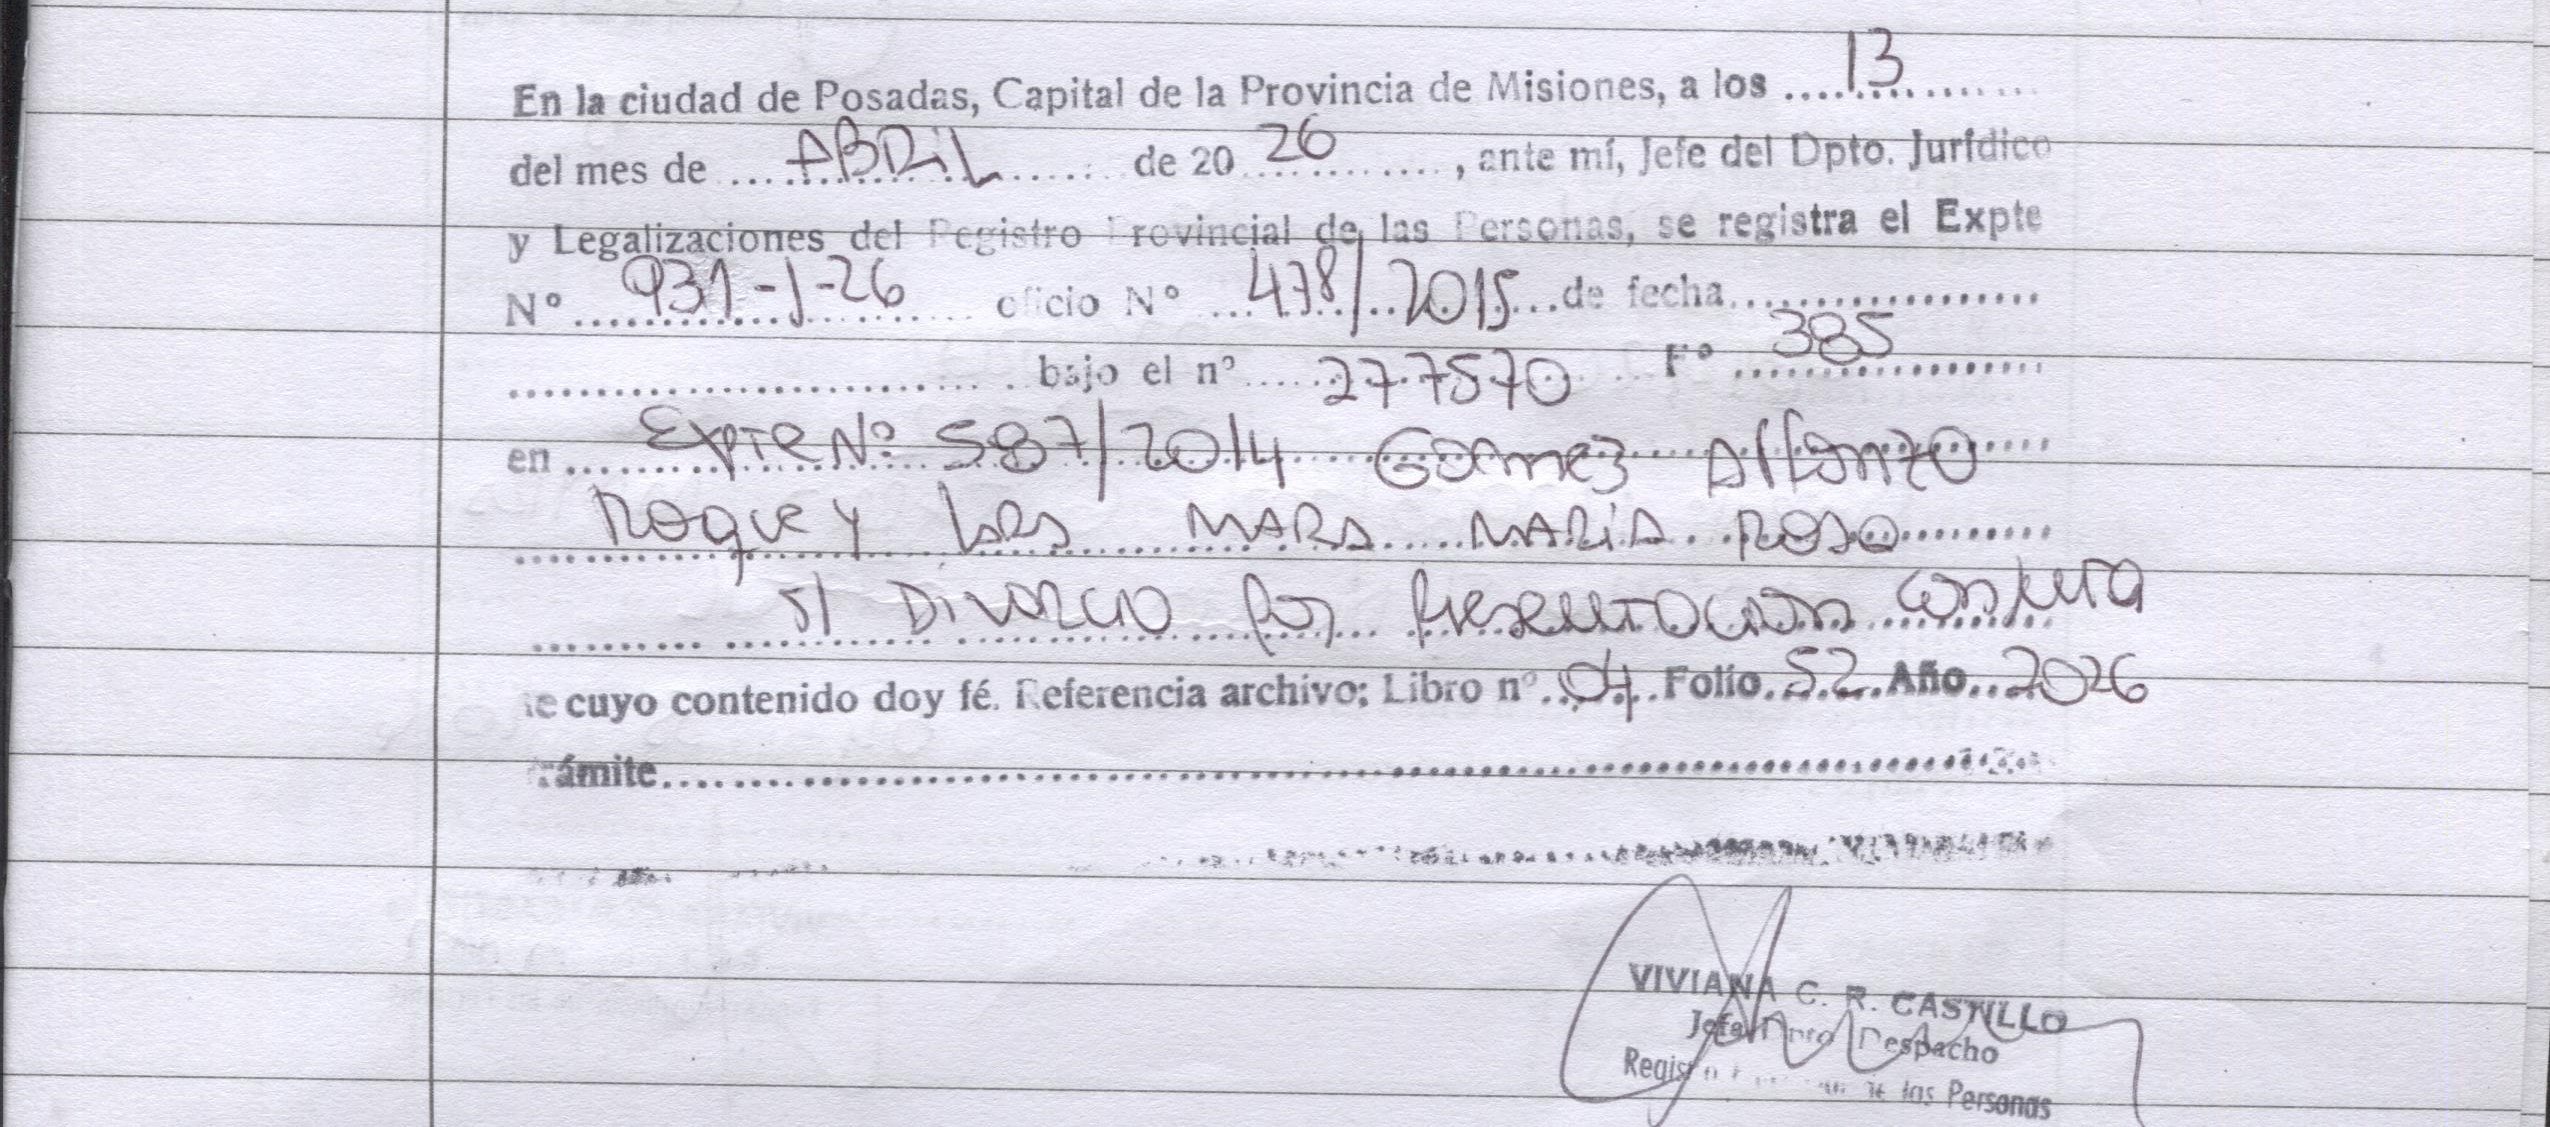 En la ciudad de Posadas, Capital de la Provincia de Misiones, a los 13
del mes de ABRIL de 20 26, ante mí, Jefe del Dpto. Jurídico
y Legalizaciones del Registro Provincial de las Personas, se registra el Expte
Nº 931-J-26 oficio Nº 478/2015 de fecha
bajo el nº 277570 Fº 385
en Expte Nº 587/2014 Gomez Alfonzo
Roque y MARA MARIA ROSA
s/ Divorcio por Presentacion conjunta
de cuyo contenido doy fé. Referencia archivo: Libro nº 04 Folio 52 Año 2026
trámite
VIVIANA C. R. CASTILLO
Jefa Dpto Despacho
Registro Provincial de las Personas